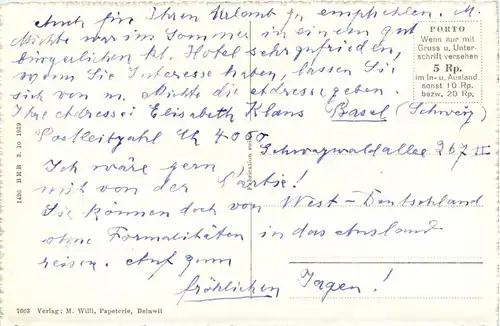 Auch für Ihren Urlaub zu empfehlen. M.
Nichte war im Sommer in einem gut
bürgerlichen kl. Hotel sehr zufrieden,
wenn Sie Interesse haben, lassen Sie
sich von m. Nichte die Adresse geben.
Ihre Adresse: Elisabeth Klaus Basel (Schweiz)
Postleitzahl Ch 4060
Schwarzwaldallee 267 II
Ich wäre gern
mit von der Partie!
Sie können doch von West-Deutschland
ohne Formalitäten in das Ausland
reisen. Auf zum
fröhlichen Jagen!
PORTO
Wenn nur mit
Gruss u. Unter-
schrift versehen
5 Rp.
im In- u. Ausland
sonst 10 Rp.
bezw. 20 Rp.
1420 BRB 3. 10 1939
Fabrication suisse
7603 Verlag: M. Willi, Papeterie, Belawit